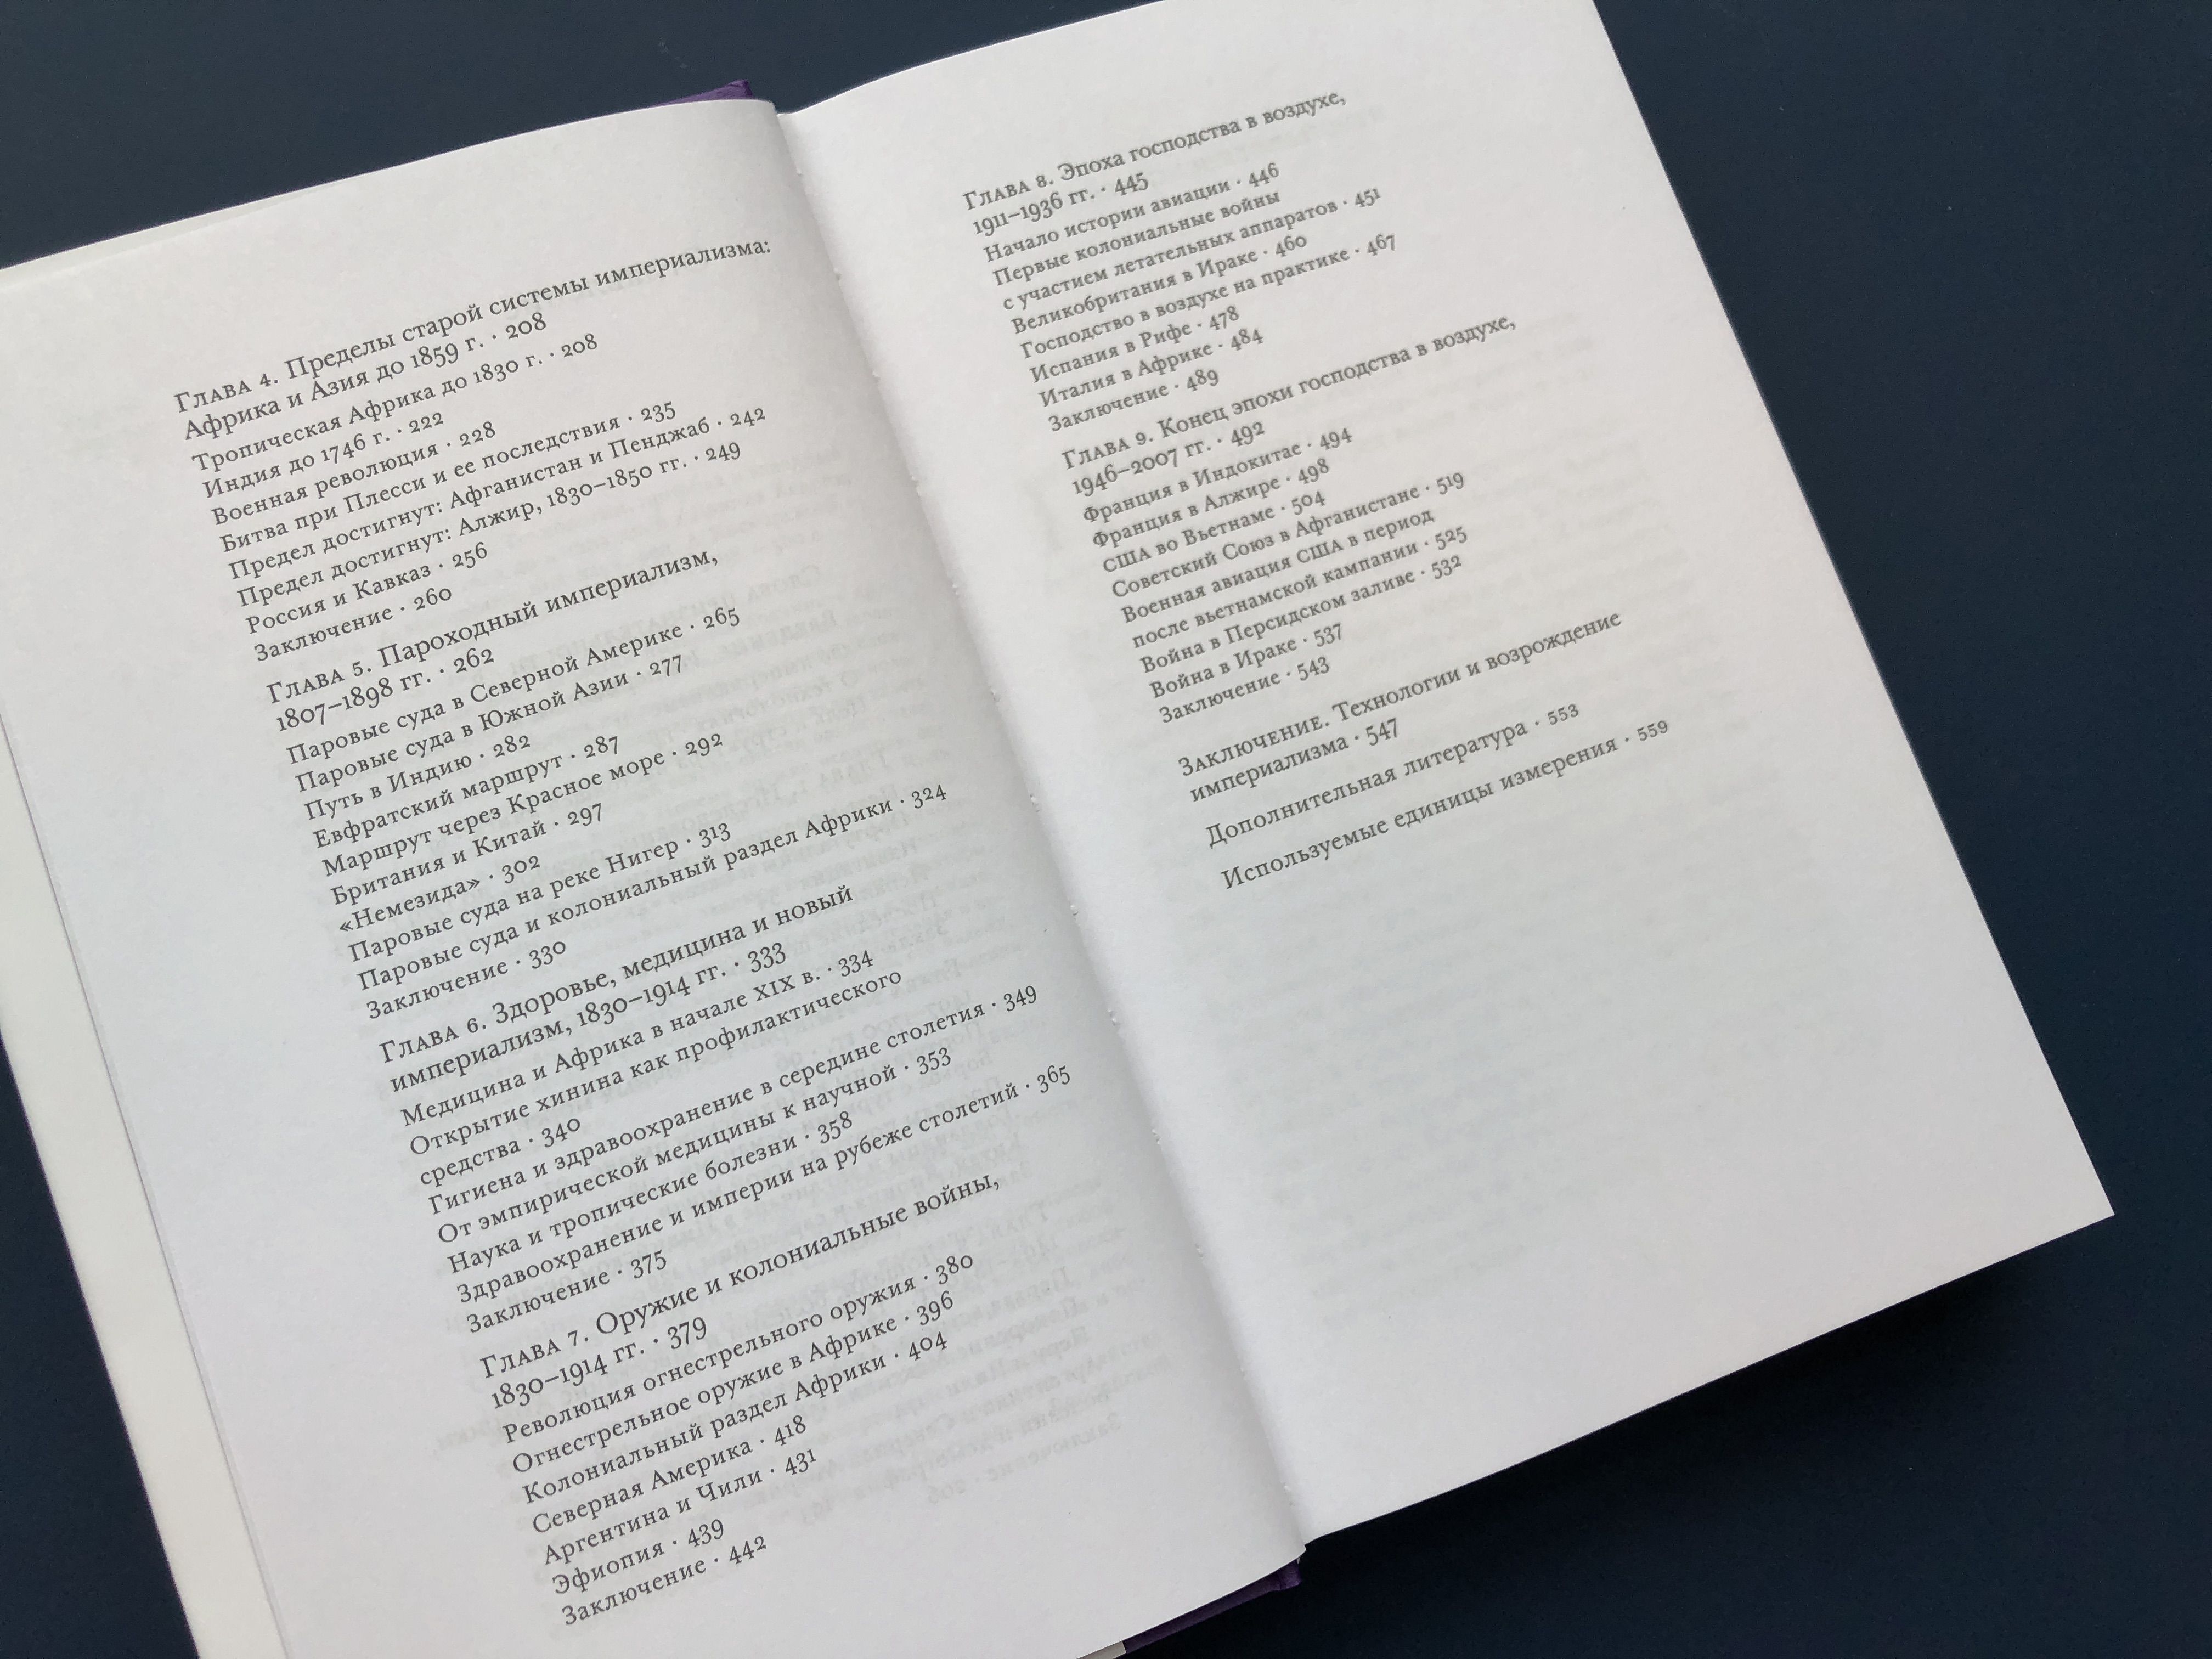 Глава 4. Пределы старой системы империализма:
Африка и Азия до 1859 г. · 208
Тропическая Африка до 1830 г. · 208
Индия до 1746 г. · 222
Военная революция · 228
Битва при Плесси и ее последствия · 235
Предел достигнут: Афганистан и Пенджаб · 242
Предел достигнут: Алжир, 1830–1850 гг. · 249
Россия и Кавказ · 256
Заключение · 260
Глава 5. Пароходный империализм,
1807–1898 гг. · 262
Паровые суда в Северной Америке · 265
Паровые суда в Южной Азии · 277
Путь в Индию · 282
Евфратский маршрут · 287
Маршрут через Красное море · 292
Британия и Китай · 297
«Немезида» · 302
Паровые суда на реке Нигер · 313
Паровые суда и колониальный раздел Африки · 324
Заключение · 330
Глава 6. Здоровье, медицина и новый
империализм, 1830–1914 гг. · 333
Медицина и Африка в начале XIX в. · 334
Открытие хинина как профилактического
средства · 340
Гигиена и здравоохранение в середине столетия · 349
От эмпирической медицины к научной · 353
Наука и тропические болезни · 358
Здравоохранение и империи на рубеже столетий · 365
Заключение · 375
Глава 7. Оружие и колониальные войны,
1830–1914 гг. · 379
Революция огнестрельного оружия · 380
Огнестрельное оружие в Африке · 396
Колониальный раздел Африки · 404
Северная Америка · 418
Аргентина и Чили · 431
Эфиопия · 439
Заключение · 442
Глава 8. Эпоха господства в воздухе,
1911–1936 гг. · 445
Начало истории авиации · 446
Первые колониальные войны
с участием летательных аппаратов · 451
Великобритания в Ираке · 460
Господство в воздухе на практике · 467
Испания в Рифе · 478
Италия в Африке · 484
Заключение · 489
Глава 9. Конец эпохи господства в воздухе,
1946–2007 гг. · 492
Франция в Индокитае · 494
Франция в Алжире · 498
США во Вьетнаме · 504
Советский Союз в Афганистане · 519
Военная авиация США в период
после вьетнамской кампании · 525
Война в Персидском заливе · 532
Война в Ираке · 537
Заключение · 543
Заключение. Технологии и возрождение
империализма · 547
Дополнительная литература · 553
Используемые единицы измерения · 559